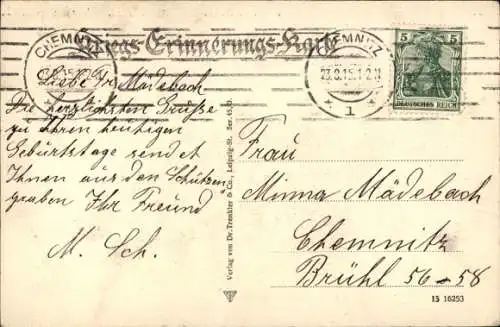 Kriegs-Erinnerungs-Karte
CHEMNITZ
CHEMNITZ
23.8.15.1-2 N
* 1 *
5 5
DEUTSCHES REICH
Liebe Fr. Mädebach
Die herzlichsten Grüße
zu Ihren heutigen
Geburtstage sendet
Ihnen aus den Schützen
graben Ihr Freund
M. Sch.
Verlag von Dr. Trenkler & Co., Leipzig-St. Ser. 45,
Frau
Minna Mädebach
Chemnitz
Brühl 56-58
15 16253